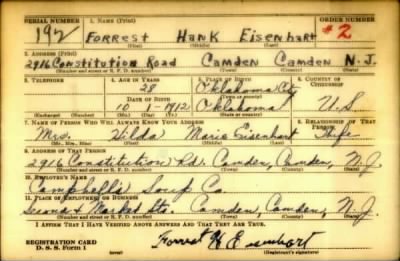 SERIAL NUMBER 1. NAME (Print) ORDER NUMBER
192 Forrest Hank Eisenhart #2
(First) (Middle) (Last)
2. ADDRESS (Print)
2916 Constitution Road Camden Camden N.J.
(Number and street or R. F. D. number) (Town) (County) (State)
3. TELEPHONE 4. AGE IN YEARS 5. PLACE OF BIRTH 6. COUNTRY OF CITIZENSHIP
28 Oklahoma City
DATE OF BIRTH (Town or county)
10-1-1912 Oklahoma U.S.
(Exchange) (Number) (Mo.) (Day) (Yr.) (State or country)
7. NAME OF PERSON WHO WILL ALWAYS KNOW YOUR ADDRESS 8. RELATIONSHIP OF THAT PERSON
Mrs. Hilda Marie Eisenhart Wife
(Mr., Mrs., Miss) (First) (Middle) (Last)
9. ADDRESS OF THAT PERSON
2916 Constitution Rd. Camden, Camden, N.J.
(Number and street or R. F. D. number) (Town) (County) (State)
10. EMPLOYER'S NAME
Campbell's Soup Co.
11. PLACE OF EMPLOYMENT OR BUSINESS
Second & Market Sts. Camden, Camden, N.J.
(Number and street or R. F. D. number) (Town) (County) (State)
I AFFIRM THAT I HAVE VERIFIED ABOVE ANSWERS AND THAT THEY ARE TRUE.
REGISTRATION CARD Forrest H Eisenhart
D. S. S. Form 1 (Registrant's signature)